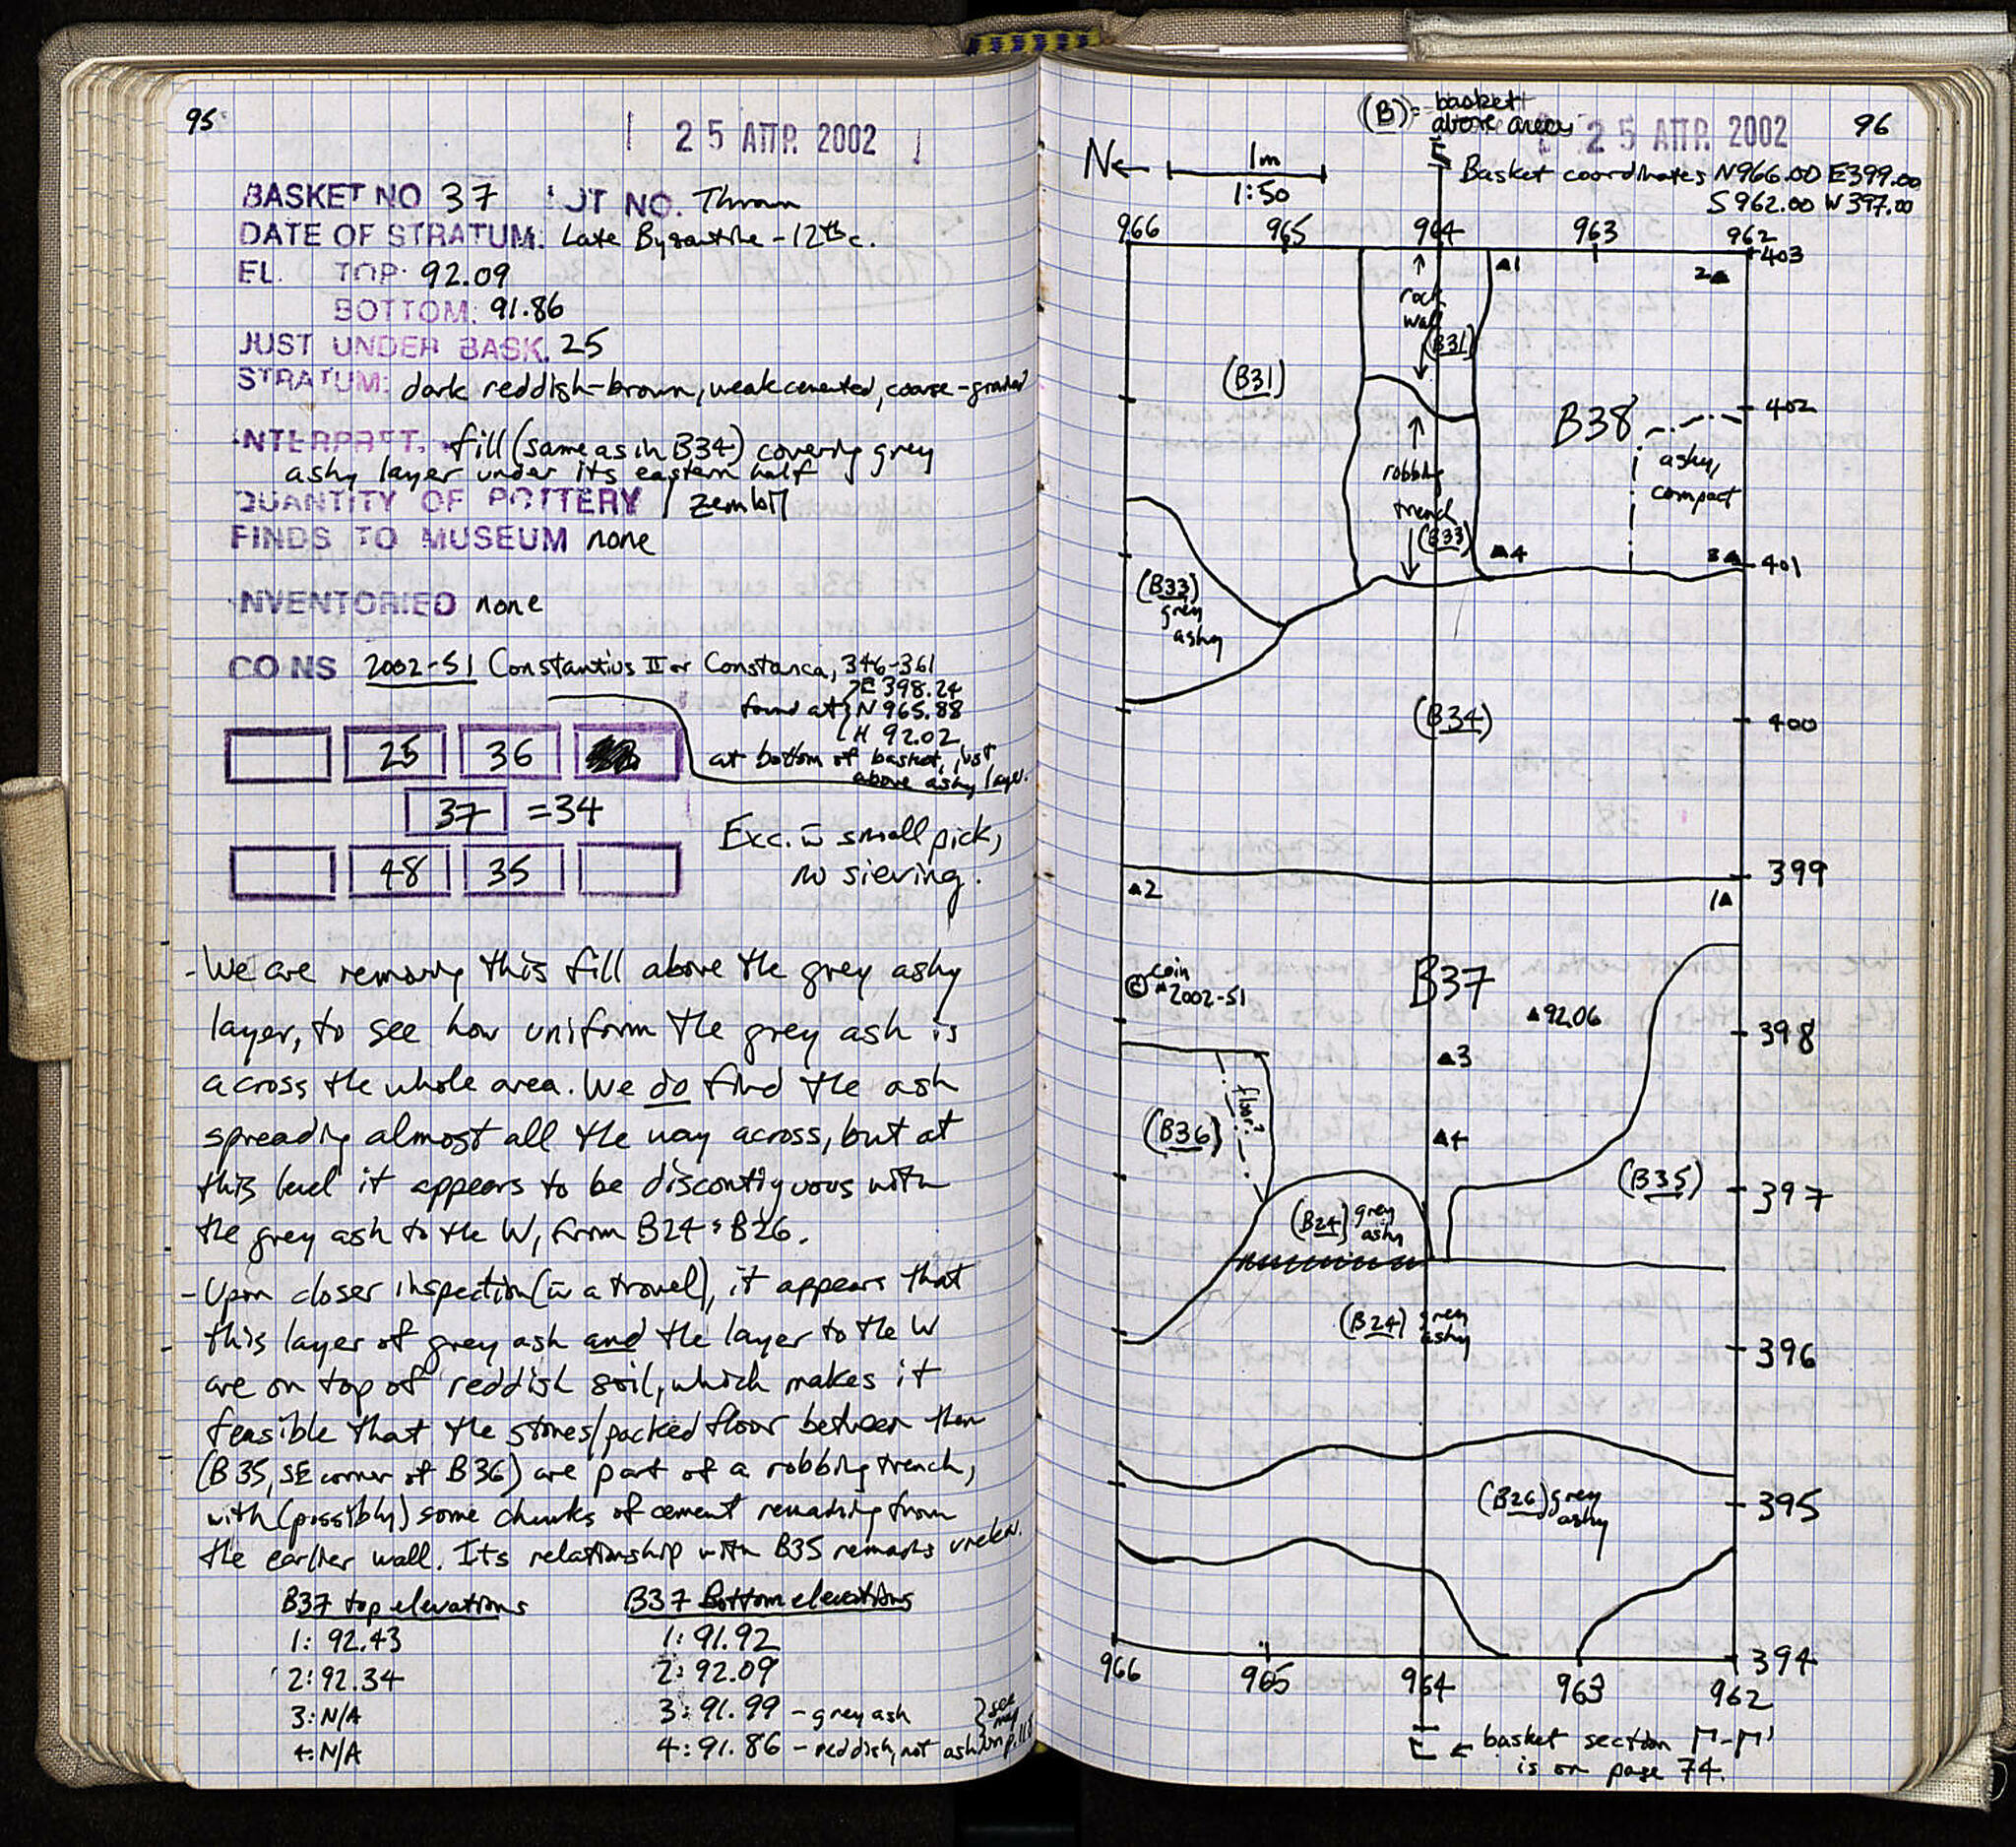 95
25 ΑΠΡ. 2002
BASKET NO 37 JT NO. Thrown
DATE OF STRATUM: Late Byzantine - 12th c.
EL. TOP: 92.09
BOTTOM: 91.86
JUST UNDER BASK. 25
STRATUM: dark reddish-brown, weak cemented, coarse-grained
INTERPRET. fill (same as in B34) covering grey
ashy layer under its eastern half
QUANTITY OF POTTERY 1 zembil
FINDS TO MUSEUM none
INVENTORIED none
COINS 2002-51 Constantius II or Constance, 346-361
found at E 398.24
N 965.88
H 92.02
at bottom of basket, just
above ashy layer.
25 36
37 =34
48 35
Exc. w̄ small pick,
no sieving.
- We are removing this fill above the grey ashy
layer, to see how uniform the grey ash is
across the whole area. We do find the ash
spreading almost all the way across, but at
this level it appears to be discontiguous with
the grey ash to the W, from B24 & B26.
- Upon closer inspection (w̄ a trowel), it appears that
this layer of grey ash and the layer to the W
are on top of reddish soil, which makes it
feasible that the stones/packed floor between them
(B35, SE corner of B36) are part of a robbing trench,
with (possibly) some chunks of cement remaining from
the earlier wall. Its relationship with B35 remains unclear.
B37 top elevations
1: 92.43
2: 92.34
3: N/A
4: N/A
B37 Bottom elevations
1: 91.92
2: 92.09
3: 91.99 - grey ash
4: 91.86 - reddish, not ash
see
on p. 118
(B) = basket
above area
25 ΑΠΡ. 2002
96
N←
1m
1:50
Basket coordinates N966.00 E399.00
S962.00 W397.00
966 965 964 963 962
403
▲1
2▲
rock
wall
(B31)
(B31)
B38
402
ashy,
compact
robbing
trench
(B33)
▲4
3▲
401
(B33)
grey
ashy
(B34)
400
399
▲2
1▲
© coin
▲2002-51
B37
▲92.06
398
▲3
floor?
(B36)
▲4
(B35)
397
(B24) grey
ashy
(B24) grey
ashy
396
(B26) grey
ashy
395
394
966 965 964 963 962
← basket section Γ-Γ'
is on page 74.